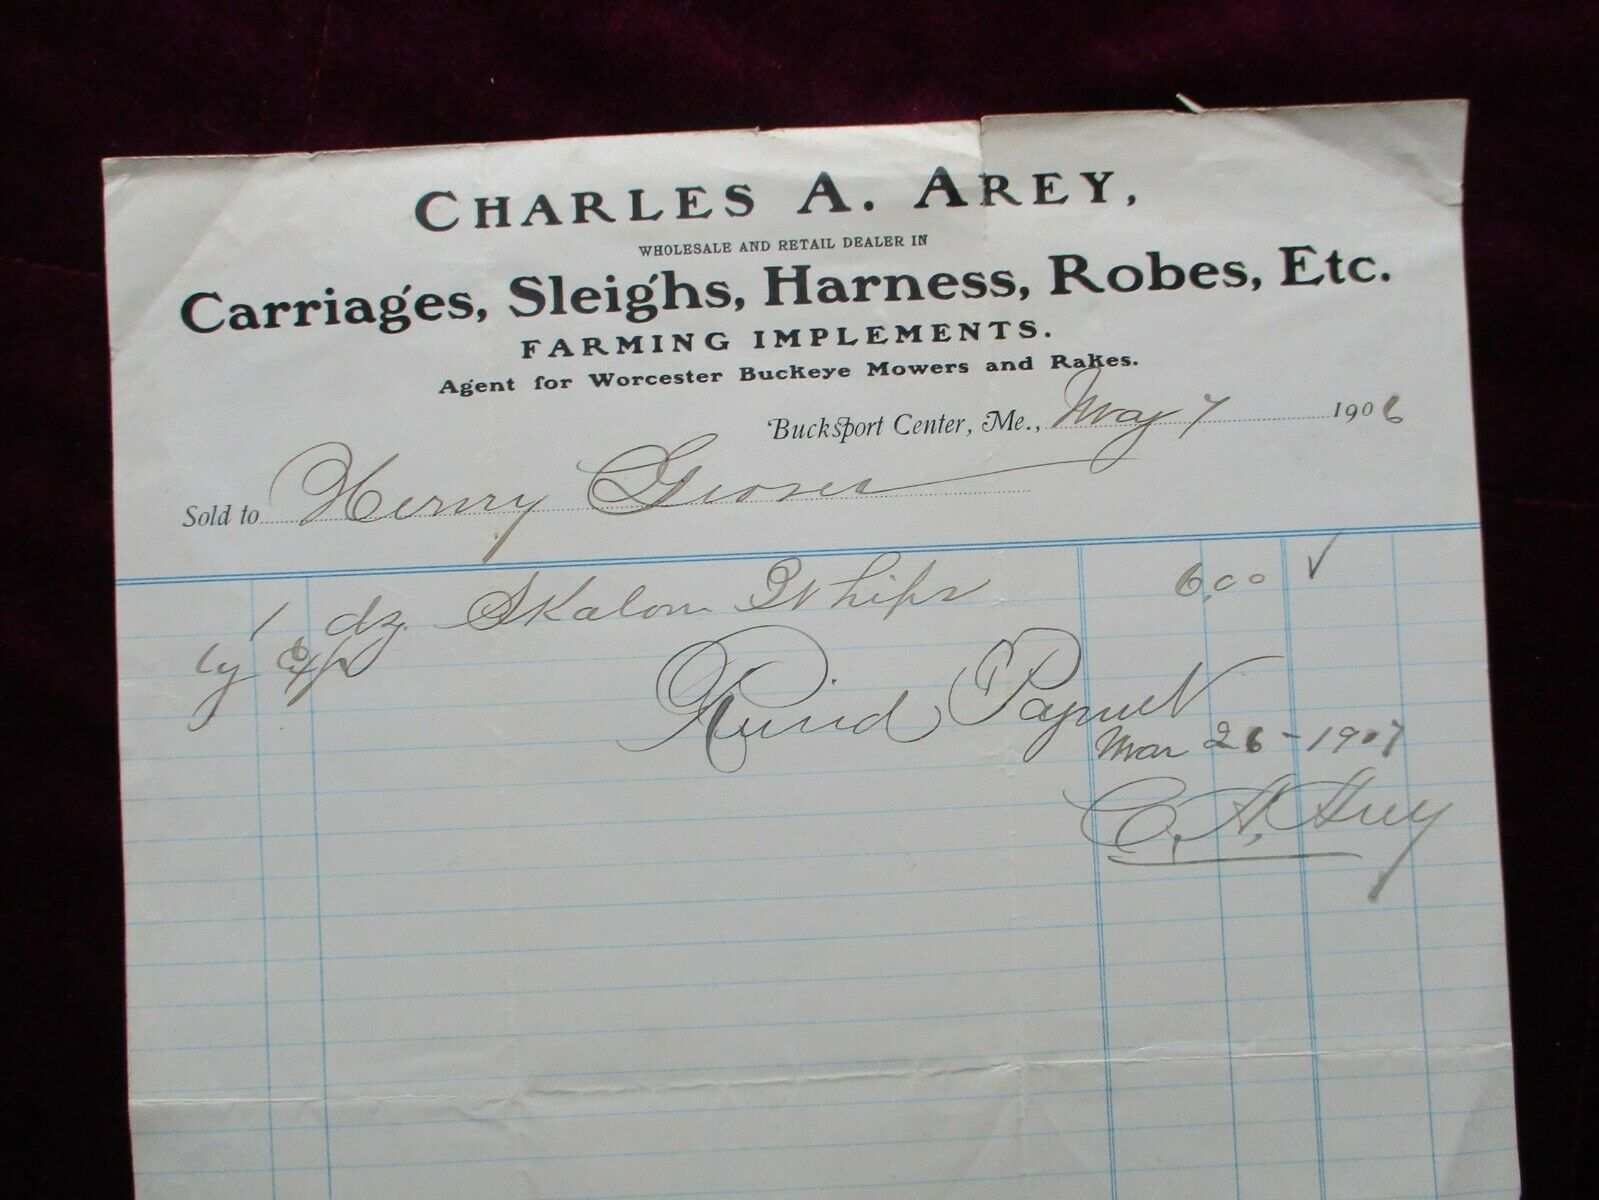 CHARLES A. AREY,
WHOLESALE AND RETAIL DEALER IN
Carriages, Sleighs, Harness, Robes, Etc.
FARMING IMPLEMENTS.
Agent for Worcester Buckeye Mowers and Rakes.
Bucksport Center, Me., May 7 1906
Sold to Henry
1 dz. Skalom Whips 6,00 ✓
by Exp
Payment
Mar 26-1907
C. A. Arey